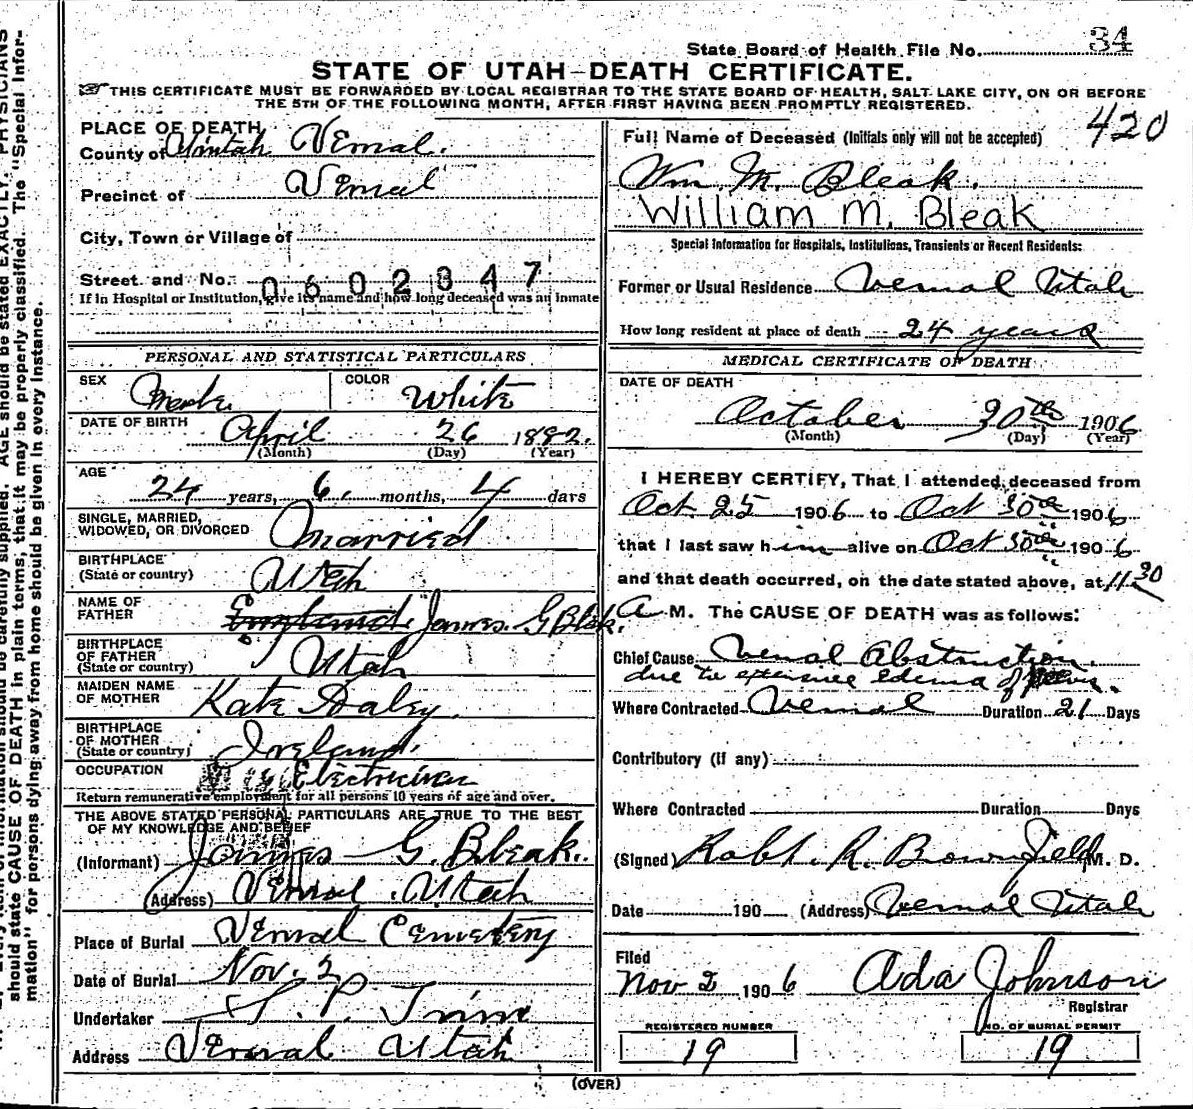 State Board of Health File No. 34
STATE OF UTAH—DEATH CERTIFICATE.
THIS CERTIFICATE MUST BE FORWARDED BY LOCAL REGISTRAR TO THE STATE BOARD OF HEALTH, SALT LAKE CITY, ON OR BEFORE
THE 5TH OF THE FOLLOWING MONTH, AFTER FIRST HAVING BEEN PROMPTLY REGISTERED.
420
PLACE OF DEATH
County of Uintah Vernal.
Precinct of Vernal
City, Town or Village of
Street and No. 0602347
If in Hospital or Institution, give its name and how long deceased was an inmate
PERSONAL AND STATISTICAL PARTICULARS
SEX Male COLOR White
DATE OF BIRTH April 26 1882.
(Month) (Day) (Year)
AGE 24 years, 6 months, 4 days
SINGLE, MARRIED,
WIDOWED, OR DIVORCED Married
BIRTHPLACE
(State or country) Utah
NAME OF
FATHER England James G Bleak.
BIRTHPLACE
OF FATHER
(State or country) Utah
MAIDEN NAME
OF MOTHER Kate Daley
BIRTHPLACE
OF MOTHER
(State or country) Ireland.
OCCUPATION Electrician
Return remunerative employment for all persons 10 years of age and over.
THE ABOVE STATED PERSONAL PARTICULARS ARE TRUE TO THE BEST
OF MY KNOWLEDGE AND BELIEF
(Informant) James G. Bleak.
(Address) Vernal Utah
Place of Burial Vernal Cemetery
Date of Burial Nov. 2
Undertaker S. P. Trim
Address Vernal Utah
Full Name of Deceased (Initials only will not be accepted)
Wm M. Bleak.
William M. Bleak
Special Information for Hospitals, Institutions, Transients or Recent Residents:
Former or Usual Residence Vernal Utah
How long resident at place of death 24 years
MEDICAL CERTIFICATE OF DEATH
DATE OF DEATH
October 30th 1906
(Month) (Day) (Year)
I HEREBY CERTIFY, That I attended deceased from
Oct 25 1906 to Oct 30th 1906
that I last saw him alive on Oct 30th 1906
and that death occurred, on the date stated above, at 11.30
A M. The CAUSE OF DEATH was as follows:
Chief Cause Renal Obstruction.
due to extensive edema of
Where Contracted Vernal Duration 21 Days
Contributory (if any)
Where Contracted Duration Days
(Signed) Robt. R. Brownfield M. D.
Date 190 (Address) Vernal Utah
Filed
Nov 2 1906 Ada Johnson
Registrar
REGISTERED NUMBER NO. OF BURIAL PERMIT
19 19
(OVER)
should state CAUSE OF DEATH in plain terms, that it may be properly classified. The "Special Infor-
mation" for persons dying away from home should be given in every instance.